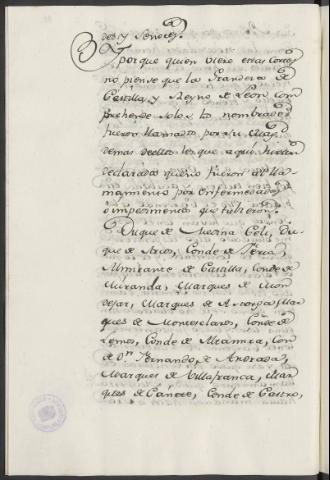 des, y Señores.
Y porque quien viere estas Cortes
no piense que la Grandeza de
Castilla, y Reyno de Leon com
prehende solos los nombrados
fueron llamados por su Mag.d
demas dellos los que aqui seran
declarados que no fueron al lla-
mamiento por enfermedades
o impedimentos que tubieron.
Duque de Medina Celi, Du-
que de Arcos, Conde de Feria,
Almirante de Castilla, Conde de
Miranda, Marques de Mon
dejar, Marques de Astorga, Mar
ques de Montesclaros, Conde de
Lemos, Conde de Altamira, Con
de D.n Fernando, de Andrada,
Marques de Villafranca, Mar
ques de Cañete, Conde de Castro,